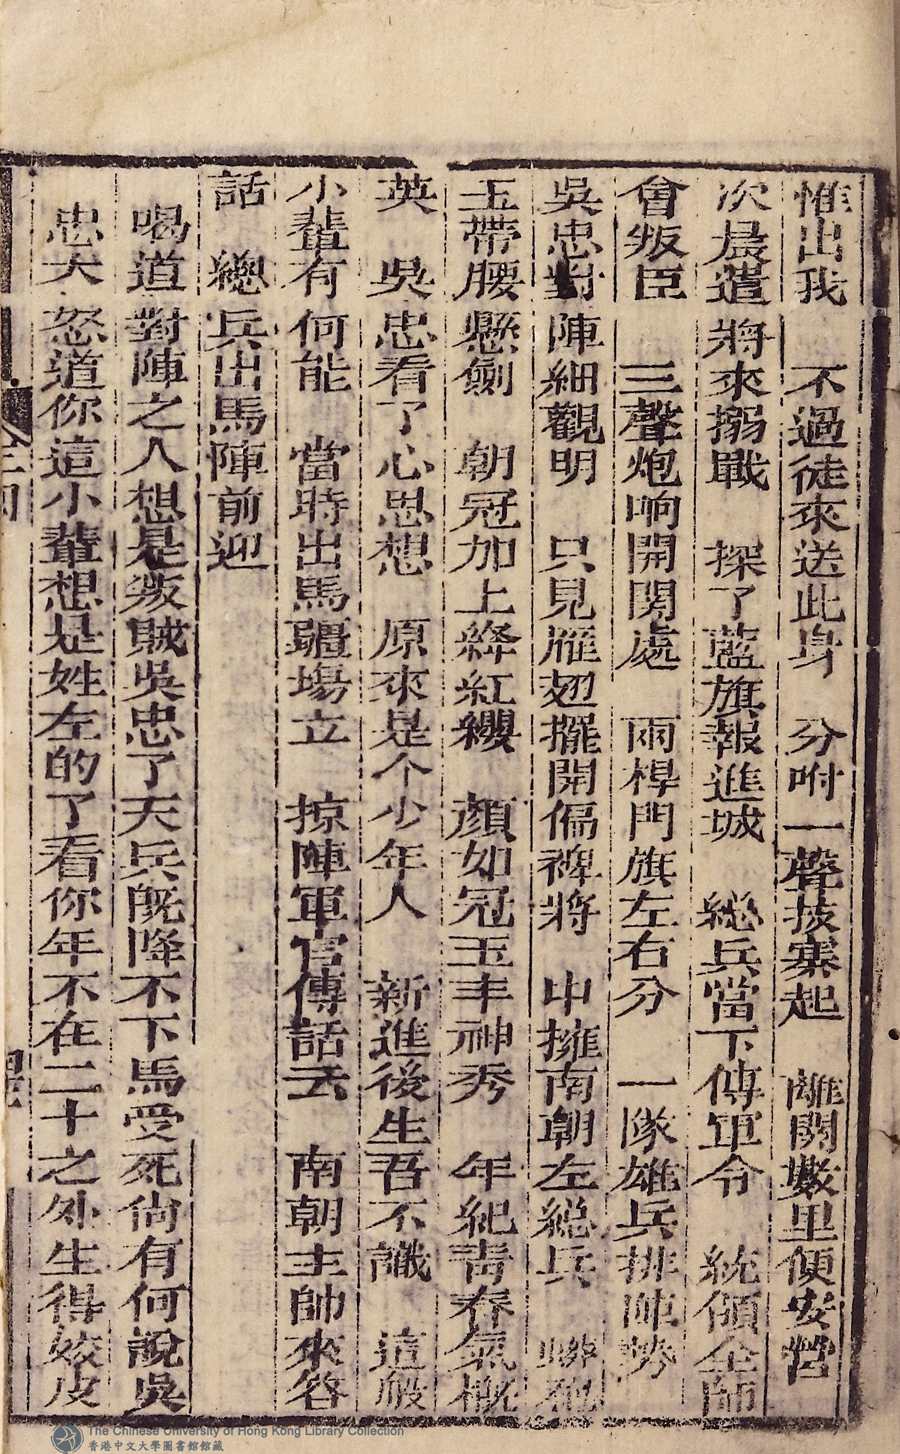 惟出我　不過徒來送此身　分咐一聲拔寨起　離關數里便安營
次晨遣將來搦戰　探了藍旗報進城　總兵當下傳軍令　統領全師
會叛臣　三聲炮响開関處　兩桿門旗左右分　一隊雄兵排陣勢
吳忠對陣細觀明　只見雁翅擺開偏裨將　中擁南朝左總兵　蟒袍
玉帶腰懸劍　朝冠加上絳紅纓　顏如冠玉丰神秀　年紀青春氣概
英　吳忠看了心思想　原來是个少年人　新進後生吾不識　這般
小輩有何能　當時出馬疆場立　掠陣軍官傳話云　南朝主帥來答
話　總兵出馬陣前迎
喝道對陣之人想是叛賊吳忠了天兵旣降不下馬受死尙有何說吳
忠大怒道你這小輩想是姓左的了看你年不在二十之外生得姣皮
The Chinese University of Hong Kong Library Collection
香港中文大學圖書館館藏